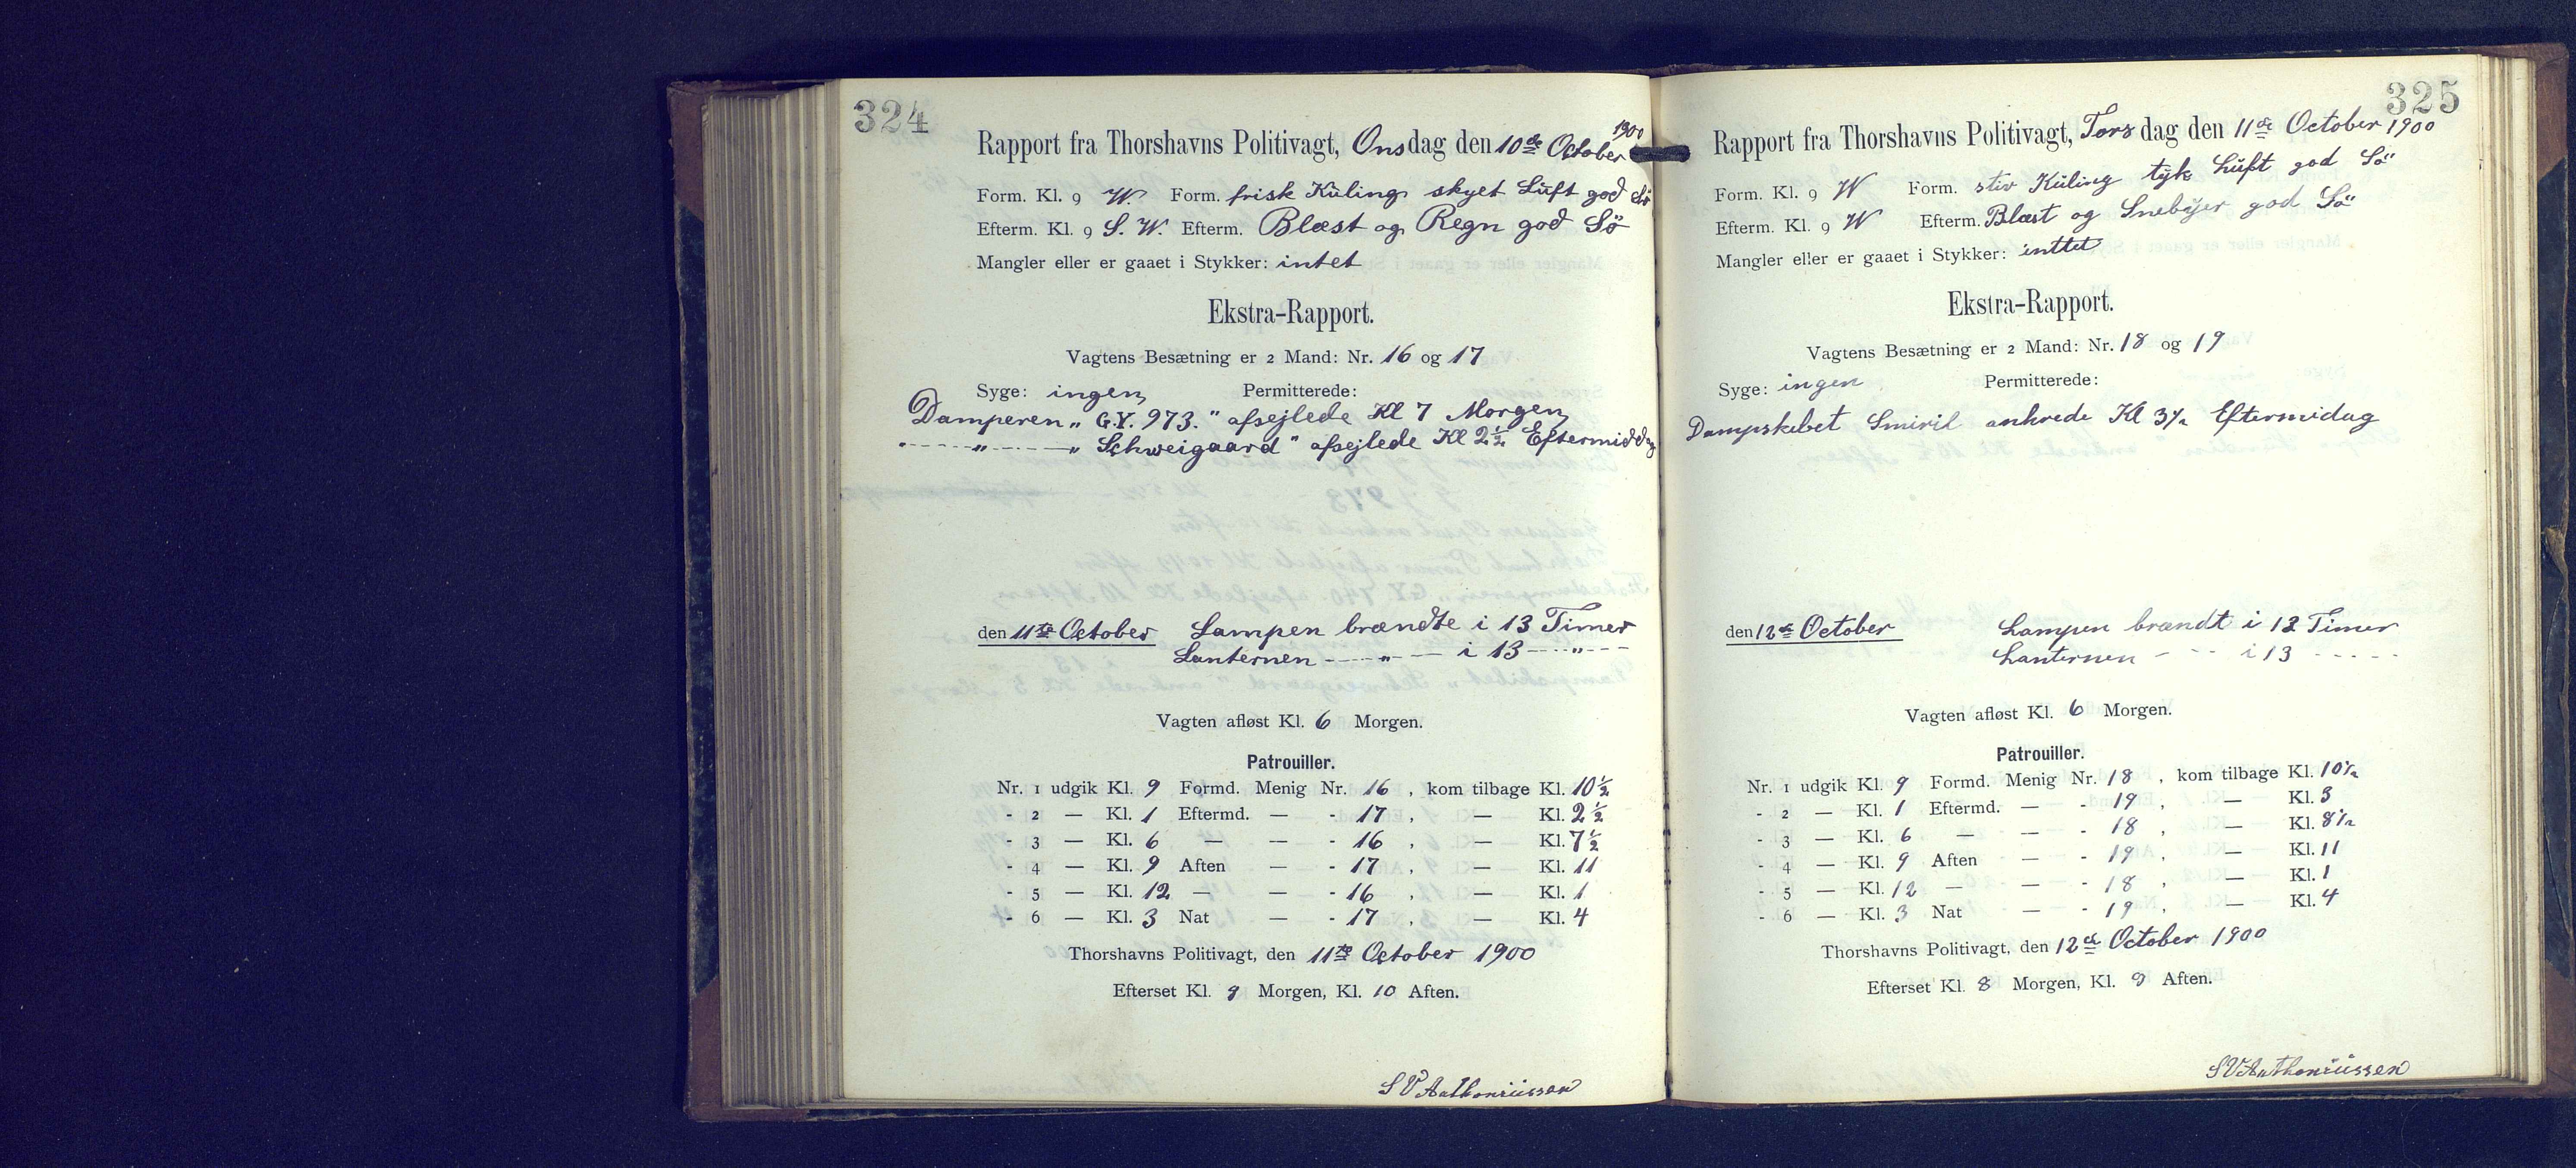 324
Rapport fra Thorshavns Politivagt, Onsdag den 10de October 1900
Form. Kl. 9 W. Form. frisk Küling skyet Lüft god Sö
Efterm. Kl. 9 S. W. Efterm. Blæst og Regn god Sö
Mangler eller er gaaet i Stykker: intet
Ekstra-Rapport.
Vagtens Besætning er 2 Mand: Nr. 16 og 17
Syge: ingen Permitterede:
Damperen „ G.Y. 973. " afsejlede Kl 7 Morgen
" — " — „ Schweigaard " afsejlede Kl 2 ½ Eftermiddag
den 11te October Lampen brændte i 13 Timer
Lanternen — " — i 13 — " —
Vagten afløst Kl. 6 Morgen.
Patrouiller.
Nr. 1 udgik Kl. 9 Formd. Menig Nr. 16 , kom tilbage Kl. 10 ½
- 2 — Kl. 1 Eftermd. — - 17 , — Kl. 2 ½
- 3 — Kl. 6 — — - 16 , — Kl. 7 ½
- 4 — Kl. 9 Aften — - 17 , — Kl. 11
- 5 — Kl. 12 — — - 16 , — Kl. 1
- 6 — Kl. 3 Nat — - 17 , — Kl. 4
Thorshavns Politivagt, den 11te October 1900
Efterset Kl. 9 Morgen, Kl. 10 Aften.
S V Anthoniüssen
325
Rapport fra Thorshavns Politivagt, Torsdag den 11de October 1900
Form. Kl. 9 W Form. stiv Küling tÿk Lüft god Sö
Efterm. Kl. 9 W Efterm. Blæst og Snebÿer god Sö
Mangler eller er gaaet i Stykker: inttet
Ekstra-Rapport.
Vagtens Besætning er 2 Mand: Nr. 18 og 19
Syge: ingen Permitterede:
Dampskebet Smiril ankrede Kl 3½ Eftermidag
den 12de October Lampen brændt i 13 Timer
Lanternen - - - i 13 - - - - -
Vagten afløst Kl. 6 Morgen.
Patrouiller.
Nr. 1 udgik Kl. 9 Formd. Menig Nr. 18 , kom tilbage Kl. 10½
- 2 — Kl. 1 Eftermd. — - 19 , — Kl. 3
- 3 — Kl. 6 — — - 18 , — Kl. 8½
- 4 — Kl. 9 Aften — - 19 , — Kl. 11
- 5 — Kl. 12 — — - 18 , — Kl. 1
- 6 — Kl. 3 Nat — - 19 , — Kl. 4
Thorshavns Politivagt, den 12de October 1900
Efterset Kl. 8 Morgen, Kl. 9 Aften.
S V Anthoniüssen